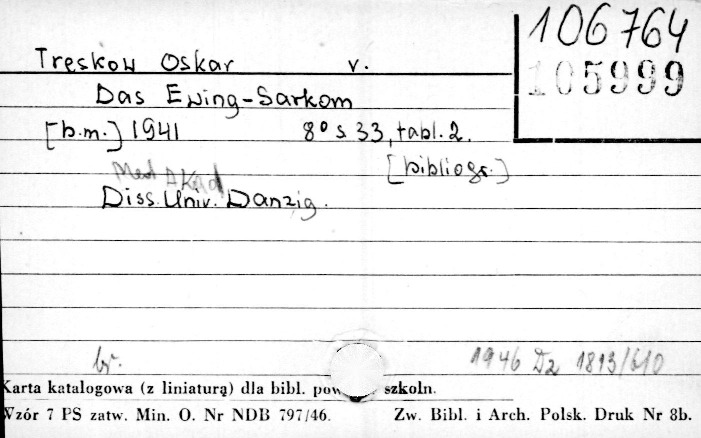 106764
105999
Treskow Oskar v.
Das Ewing-Sarkom
[b.m.] 1941 8° s 33, tabl. 2.
[bibliogr.]
Med Akad
Diss. Univ. Danzig.
br. 1946 Dz 1813/610
Karta katalogowa (z liniaturą) dla bibl. pow szkoln.
Wzór 7 PS zatw. Min. O. Nr NDB 797/46. Zw. Bibl. i Arch. Polsk. Druk Nr 8b.